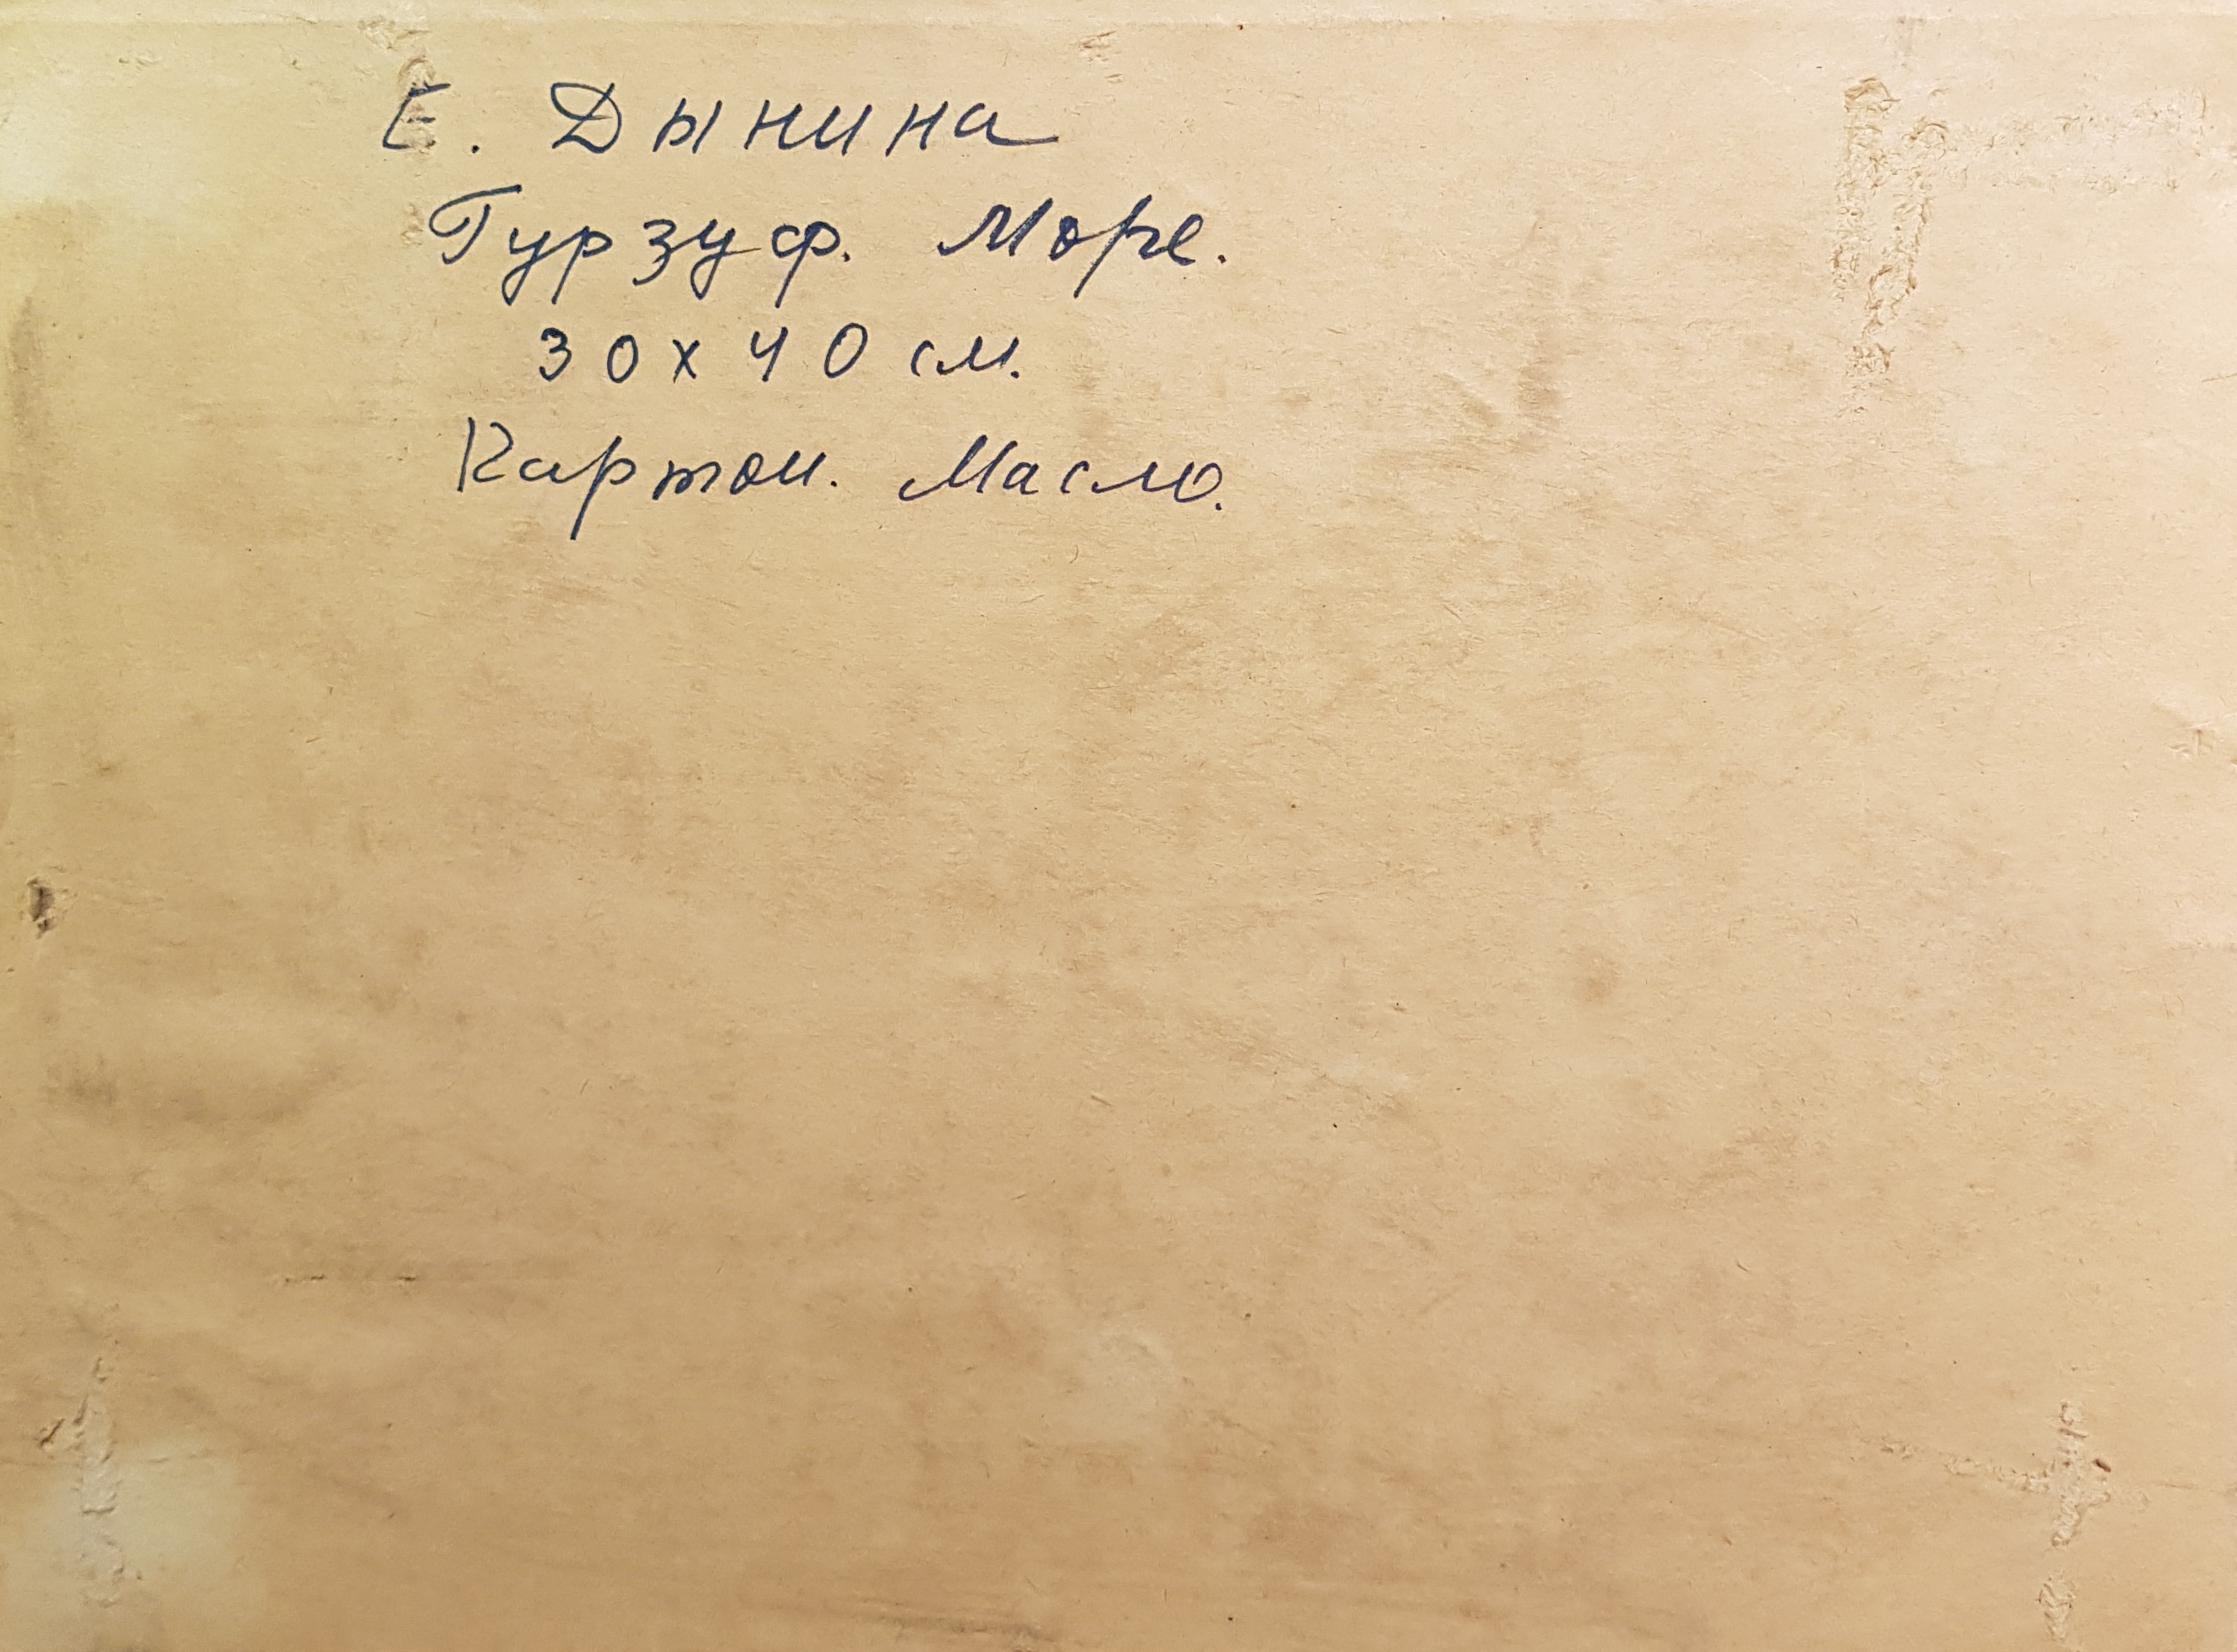 Е. Дынина
Гурзуф. Море.
30х40 см.
Картон. Масло.